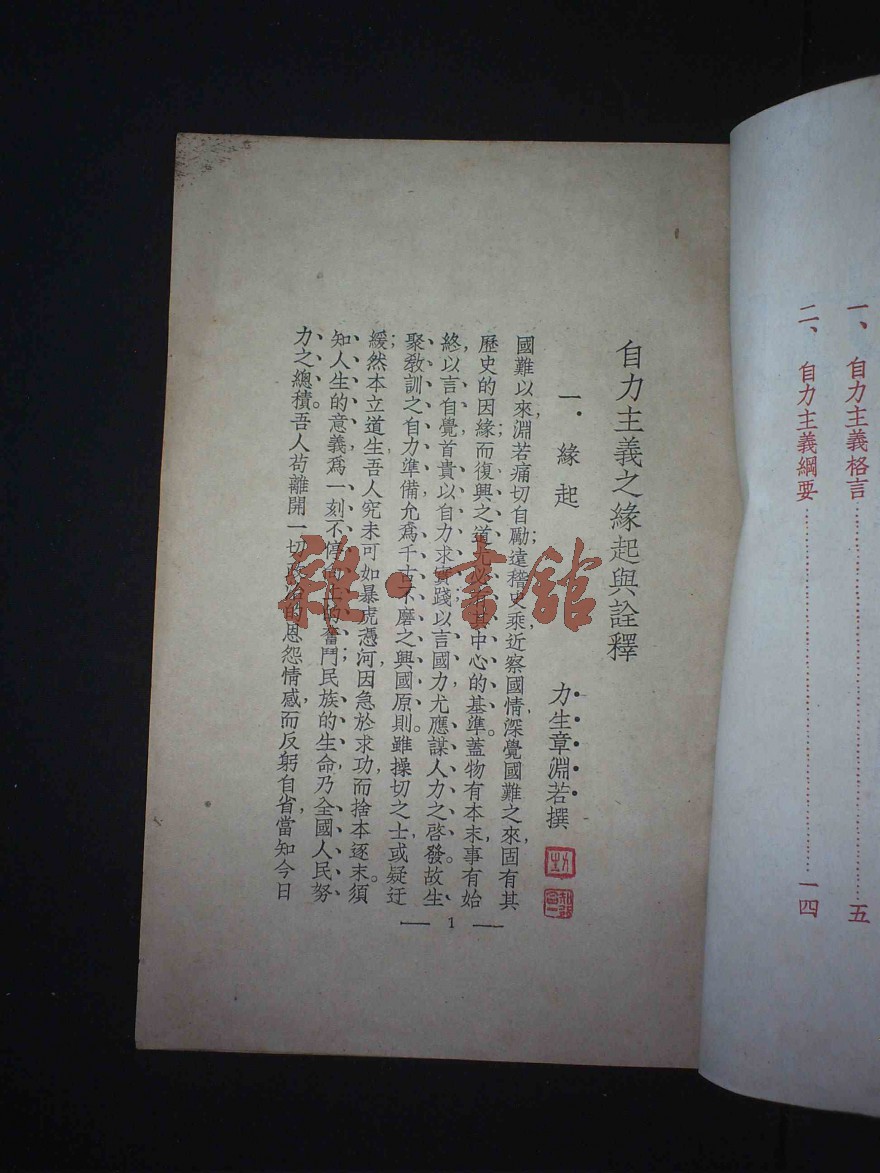 一、自力主義格言……………………五
二、自力主義綱要……………………一四
自力主義之緣起與詮釋
一．緣起
力生章淵若撰
國難以來，淵若痛切自勵，遠稽史乘，近察國情，深覺國難之來，固有其
歷史的因緣；而復興之道，尤必有其中心的基準。蓋物有本末，事有始
終，以言自覺，首貴以自力求實踐；以言國力，尤應謀人力之啓發。故生
聚教訓之自力準備，允爲千古不磨之興國原則。雖操切之士，或疑迂
緩；然本立道生，吾人究未可如暴虎憑河，因急於求功，而捨本逐末。須
知人生的意義，爲一刻不停向上的奮鬥；民族的生命，乃全國人民努
力之總積。吾人苟離開一切政治的恩怨情感，而反躬自省，當知今日
— 1 —
雜·書館
力生